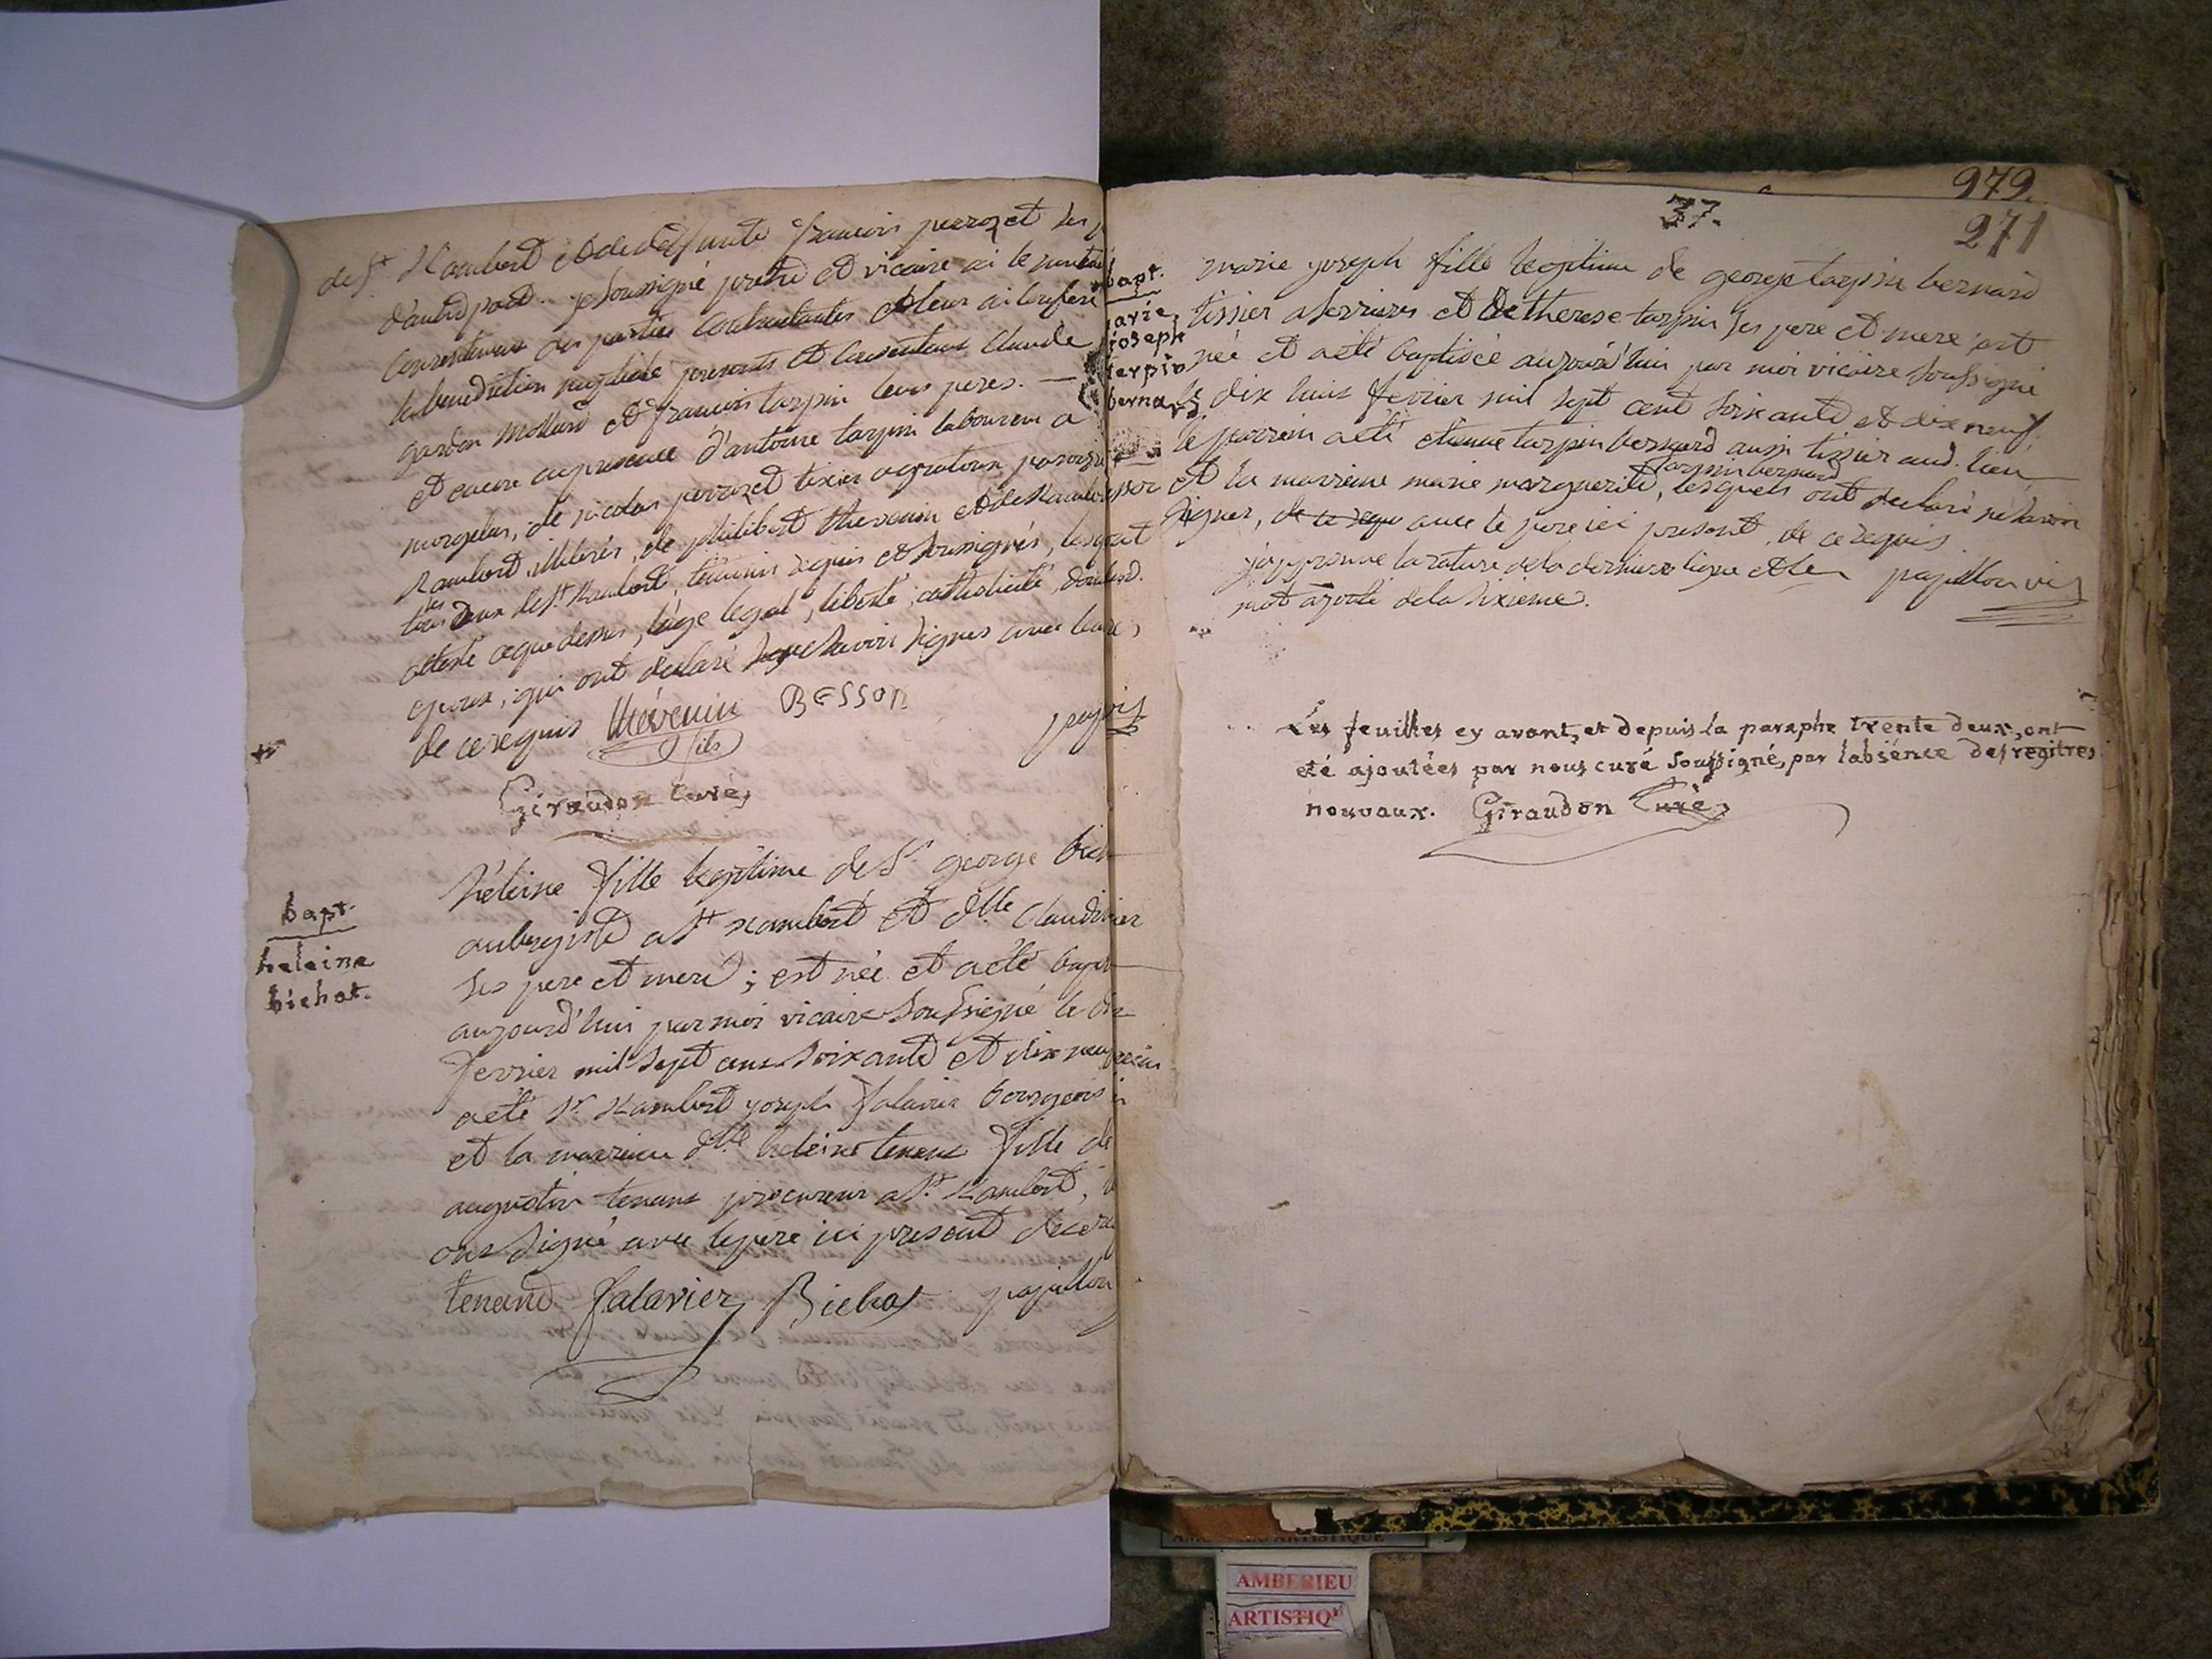 de St Rambert et de deffunte francois perrozet ses
d'autre part. je soussigné pretre et vicaire ai le mutuel
consentement des parties contractantes et leur ai conferé
la benediction nuptiale presents et consentans Claude
gardon mollard et francois tarpin leurs peres. —
et encore en presence d'antoine tarpin laboureur a
morgelas, de nicolas perrozet tixier
Rambert, de philibert thevenin et de Rambert
tous deux de St Rambert, temoins requis et soussignés, lesquels ont
attesté ce que dessus, l'age legal, liberté, catholicité, domicile d.
epoux, qui ont declaré ne scavoir signer avec leurs
de ce requis thévenin BESSON
fils
Giraudon curé,
bapt.
heleine
bichat.
héleine fille legitime de Sr george
aubergiste a St rambert et dlle
ses pere et mere; est née et a eté
aujourd'hui par moi vicaire soussigné le
fevrier mil sept cens soixante et dix
a eté Sr Rambert joseph falavier bourgeois
et la marreine dlle heleine tenant fille de
augustin tenant procureur a St Rambert,
ont signé avec le pere ici present
tenand falavier Bichat papillon
979.
37.
271
bapt.
marie
joseph
terpin
bernard.
marie joseph fille legitime de george tarpin bernard
tissier a serrieres et de therese tarpin ses pere et mere est
née et a eté baptisée aujourd'hui par moi vicaire soussigné
le dix huit fevrier mil sept cent soixante et dix neuf.
le parrein a eté etienne tarpin bernard aussi tissier aud. lieu
tarpin bernard
et la marreine marie marguerite, lesquels ont declaré ne scavoir
signer, de ce requ avec le pere ici present, de ce requis
j'approuve la rature de la derniere ligne et le papillon vic
mot ajouté de la sixieme.
Les feuilles cy avant, et depuis la paraphe trente deux, ont
eté ajoutées par nous curé soussigné, par l'absence des regitres
nouvaux. Giraudon Curé,
AMBERIEU
ARTISTIQ